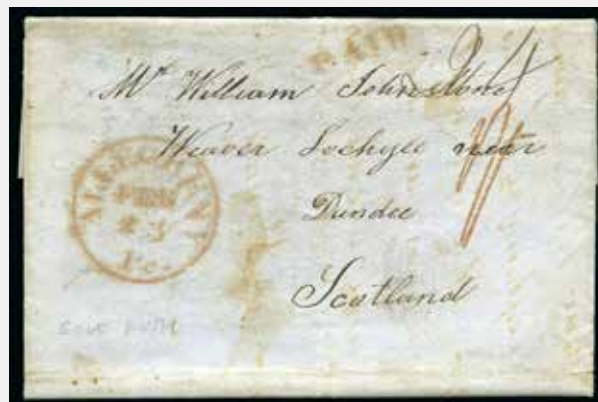 PAID
Mr William Johnstone
Weaver Lochyee near
Dundee
Scotland
ALLEGHENY
FEB
23
Pa.